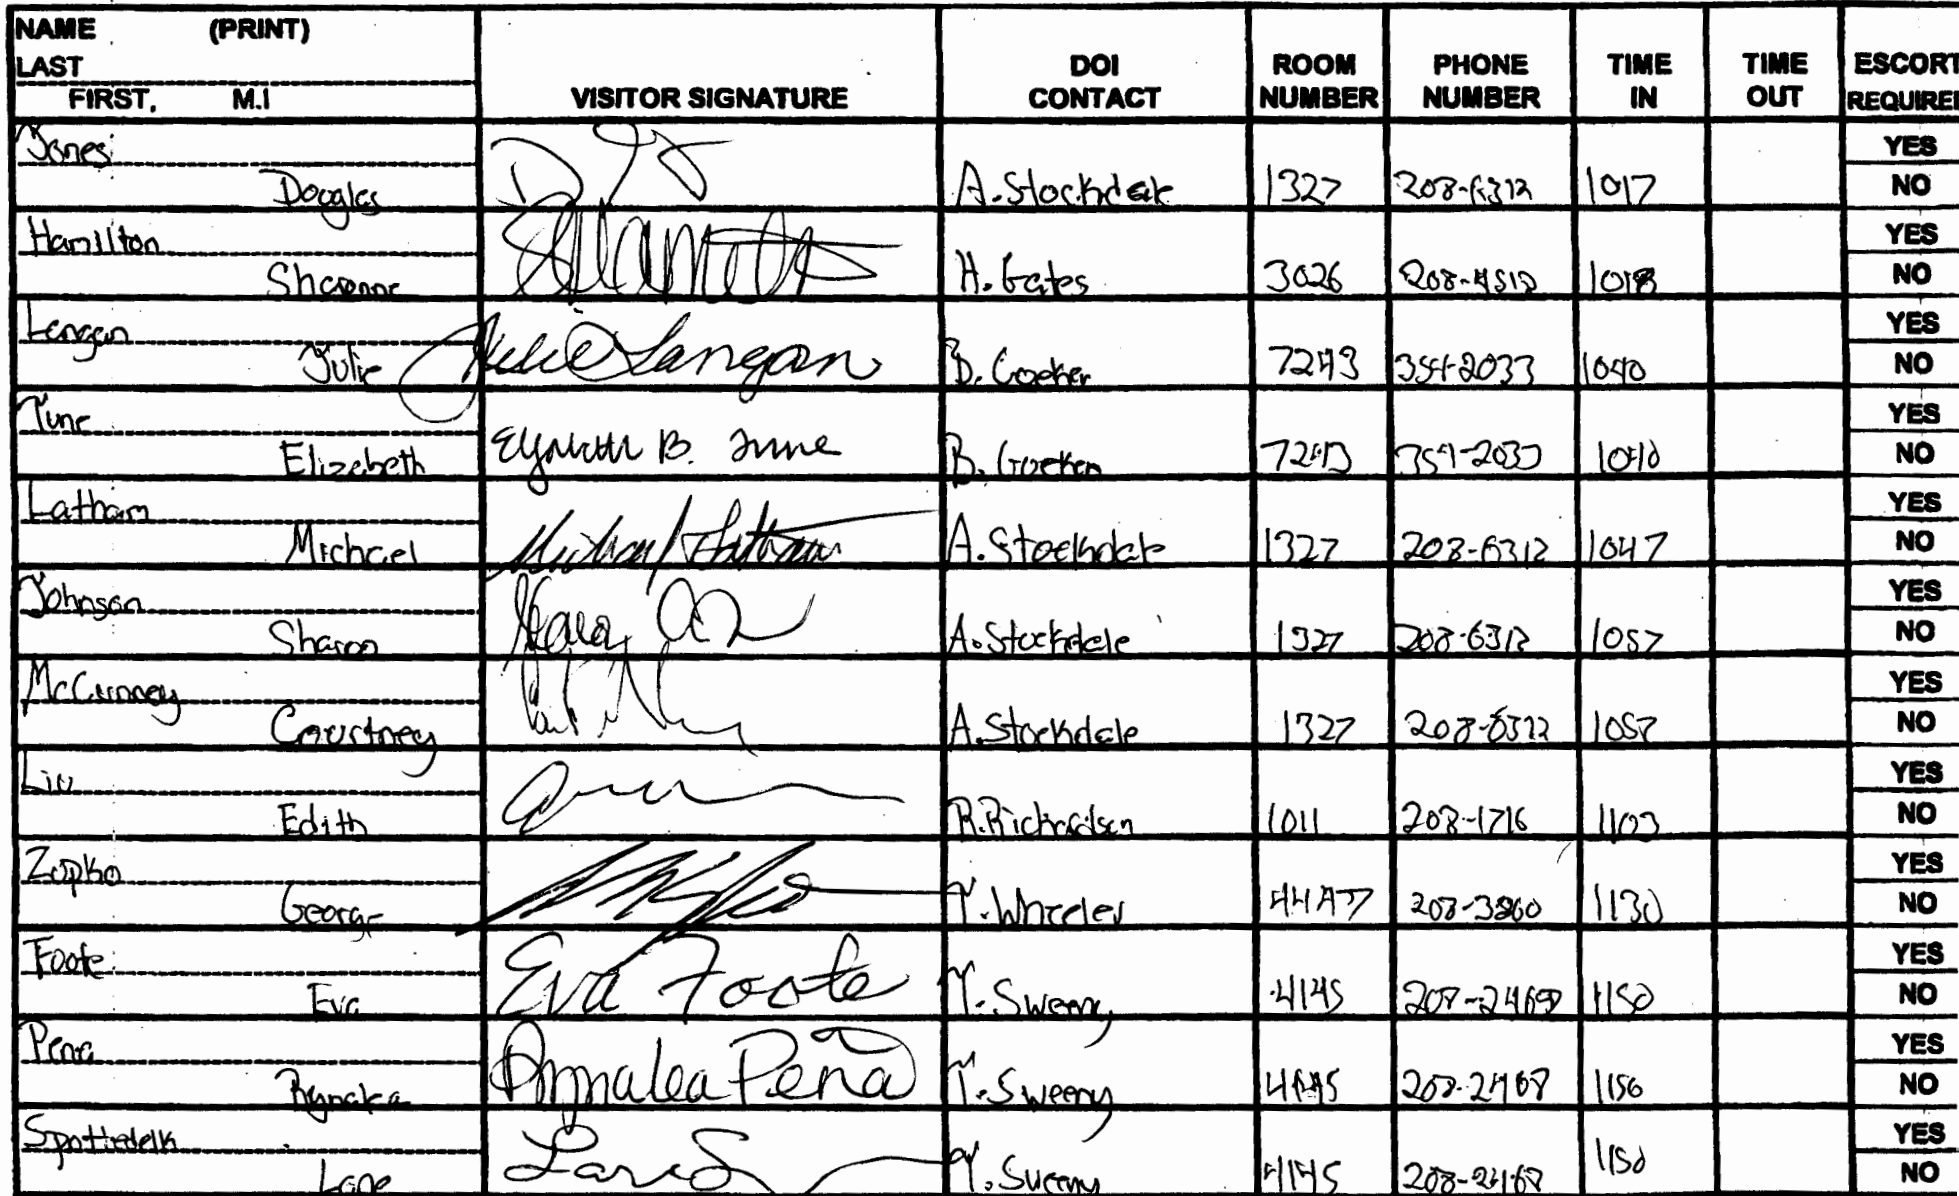 NAME (PRINT)
LAST
FIRST, M.I
VISITOR SIGNATURE
DOI CONTACT
ROOM NUMBER
PHONE NUMBER
TIME IN
TIME OUT
ESCORT REQUIRED
Jones YES
Douglas A. Stockdale 1327 208-6312 1017 NO
Hamilton YES
Sharonne H. Gates 3026 208-4512 1018 NO
Langan YES
Julie Julie Langan B. Goeken 7243 354-2033 1040 NO
Tune YES
Elizabeth Elizabeth B. Tune B. Goeken 7243 354-2033 1040 NO
Latham YES
Michael Michael Latham A. Stockdale 1327 208-6312 1047 NO
Johnson YES
Sharon A. Stockdale 1327 208-6312 1057 NO
YES
Courtney A. Stockdale 1327 208-6312 1057 NO
Liu YES
Edith R. Richardson 1011 208-1716 1103 NO
Zopko YES
George T. Wheeler 1130 NO
Foote YES
Eva Eva Foote T. Sweeny 4145 1150 NO
Pena YES
Annalea Peña T. Sweeny 4145 NO
Spottedelk YES
Lane T. Sweeny 4145 1150 NO